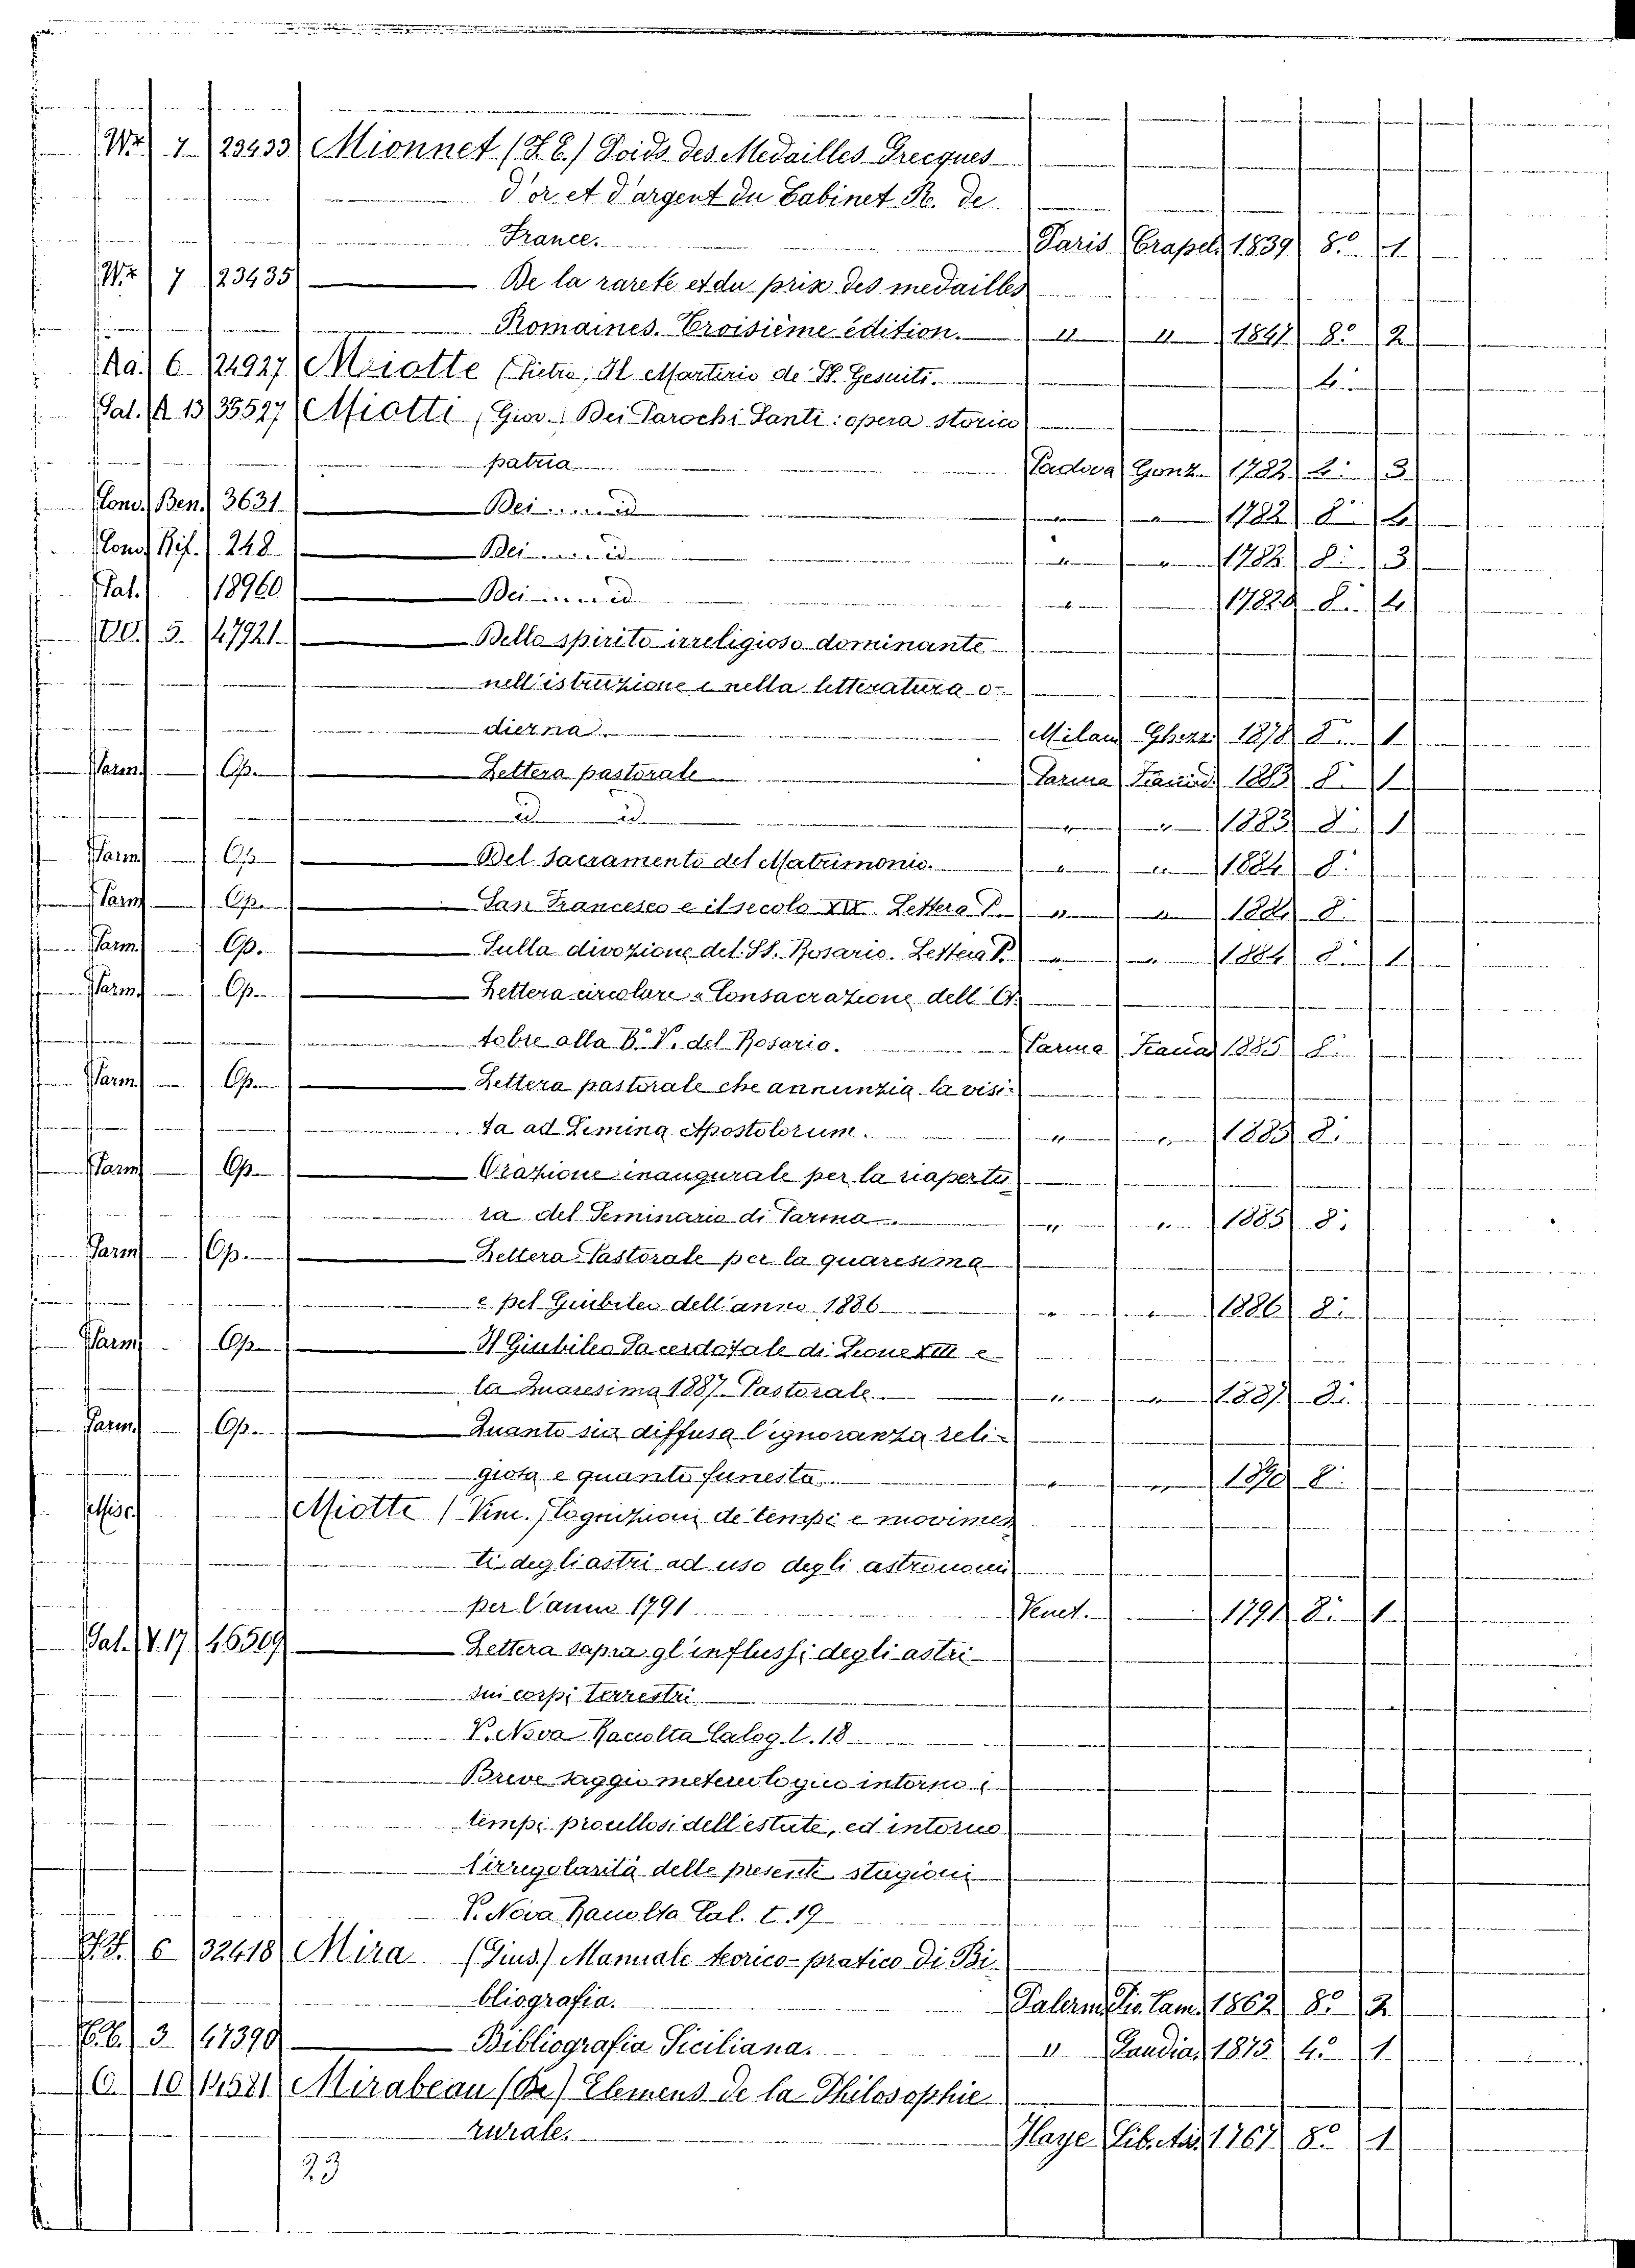 Wz 7 23433 Mionnet (T. E.) Poids des Medailles Grecques
d'or et d'argent du Cabinet R. de
France. Paris Crapel. 1839 8.º 1
Wz 7 23435 De la rareté et du prix des medailles
Romaines. Troisième édition. " " 1847 8.º 2
Aa. 6 24927 Miotte (Pietro) Il Martirio de' PP. Gesuiti. 4.
Sal. A 13 35527 Miotti (Gio.) Dei Parochi Santi: opera storico
patria Padova Gonz. 1782 8. 3
Cono. Ben. 3631 Dei id 1782 8. 4
Cono. Rif. 248 Dei id " " 1782 8. 3
Pat. 18960 Dei id " 1782 8. 4
5. 47921 Dello spirito irreligioso dominante
nell istruzione e nella letteratura o-
dierna Milano Ghezz. 1878 8. 1
Parm. Op. Lettera pastorale Parma 1883 8. 1
id id " " 1883 8. 1
Parm. Op. Del Sacramento del Matrimonio. " " 1884 8.
Parm. Op. San Francesco e il secolo XIX. Lettera P. " " 188 8.
Parm. Op. Sulla divozione del SS. Rosario. Lettera P. " " 1884 8. 1
Parm. Op. Lettera circolare "Consacrazione dell' Ot.
tobre alla B. V. del Rosario. Parma 1885 8.
Parm. Op. Lettera pastorale che annunzia la visi-
ta ad Limina Apostolorum. " " 1885 8.
Parm. Op. Orazione inaugurale per la riapertu
ra del Seminario di Parma " " 1885 8.
Parm. Op. Lettera Pastorale per la quaresima
e pel Giubileo dell'anno 1886 " " 1886 8.
Parm. Op. Il Giubileo Sacerdotale di Leone XIII e
la Quaresima 1887 Pastorale " " 1887 8.
Parm. Op. Quanto sia diffusa l'ignoranza reli-
giosa e quanto funesta " " 18 8.
Misc. Miotte (Vin.) Cognizioni de' tempi e movimen
ti degli astri ad uso degli astronomi
per l'anno 1791 Venet. 1791 8. 1
Sal. V. 17 46509 Lettera sopra gl'influssi degli astri
sui corpi terrestri
V. Nova Raccolta Calog. t. 18
Breve saggio metereologico intorno i
tempi procellosi dell'estate, ed intorno
l'irregolarità delle presenti stagioni
V. Nova Raccolta Cal. t. 19
6 32418 Mira (Gius.) Manuale teorico-pratico di Bi-
bliografia. Palerm. 1862 8.º 2
3 47390 Bibliografia Siciliana. " Gaudia. 1875 4.º 1
6 10 14581 Mirabeau (De) Elemens de la Philosophie
rurale. Haye Lib. As. 1767 8.º 1
23